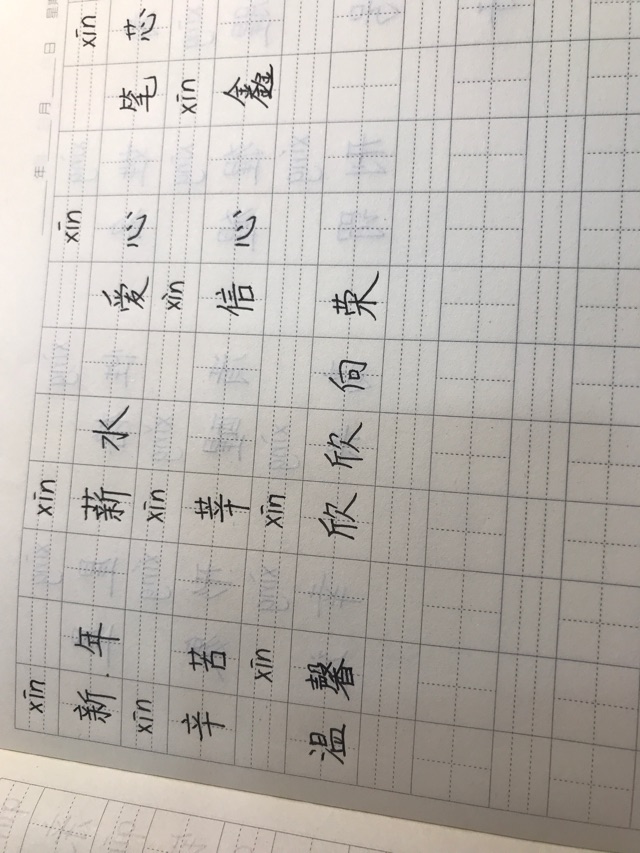 年 月 日
xīn xīn xīn xīn
新年 薪水 爱心 笔芯
xīn xīn xìn xīn
辛苦 莘 信心 鑫
xīn xīn
温馨 欣欣向荣